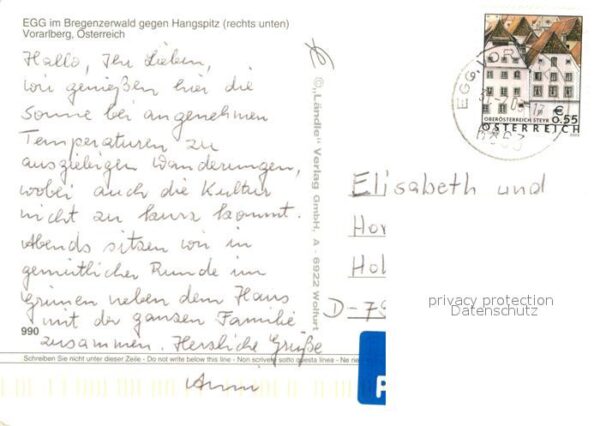 EGG im Bregenzerwald gegen Hangspitz (rechts unten)
Vorarlberg, Österreich
Hallo, Ihr Lieben,
wir genießen hier die
Sonne bei angenehmen
Temperaturen zu
ausgiebigen Wanderungen,
wobei auch die Kultur
nicht zu kurz kommt.
Abends sitzen wir in
gemütlicher Runde im
Grünen neben dem Haus
mit der ganzen Familie
zusammen. Herzliche Grüße
Anni
990
Schreiben Sie nicht unter dieser Zeile - Do not write below this line - Non scrivete sotto questa linea - Ne ne
©„Ländle" Verlag GmbH, A - 6922 Wolfurt
EGG, VOR
6863
€ 0,55
OBERÖSTERREICH STEYR
ÖSTERREICH
Elisabeth und
Hor
Hol
D-79
privacy protection
Datenschutz
P